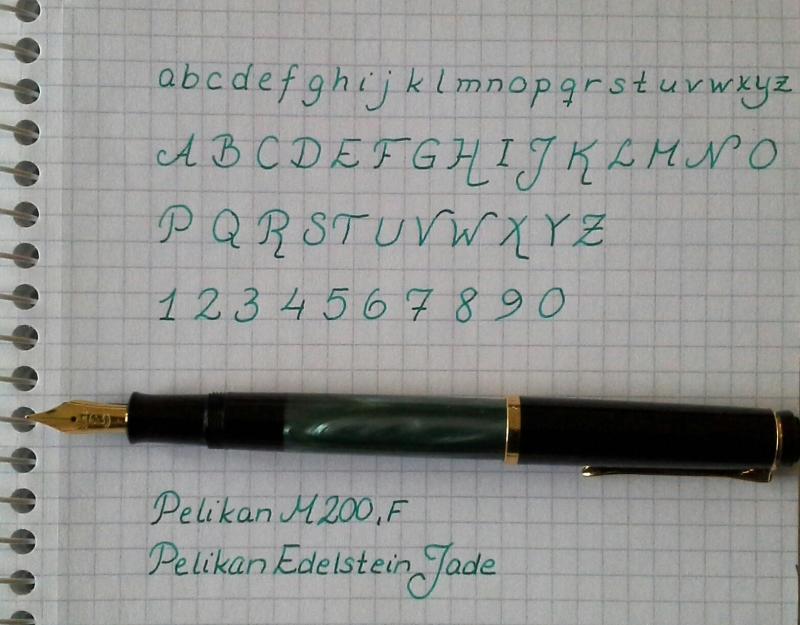 abcdefghijklmnopqrstuvwxyz
A B C D E F G H I J K L M N O
P Q R S T U V W X Y Z
1 2 3 4 5 6 7 8 9 0
Pelikan M200, F
Pelikan Edelstein Jade